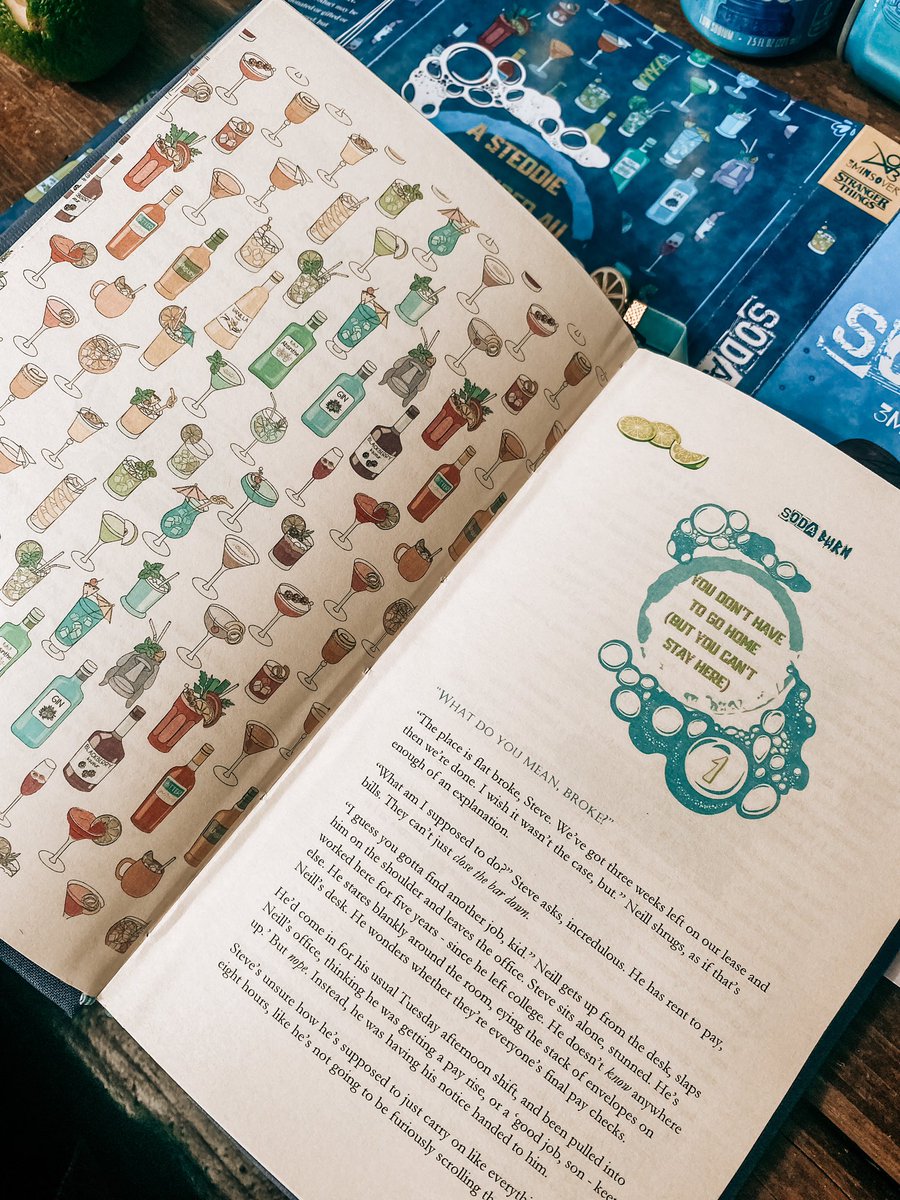 A STEDDIE
3MINSOVER
STRANGER
THINGS
SODA
3M
7.5 FL OZ
GIN
GIN
SODA BURN
YOU DON'T HAVE
TO GO HOME
(BUT YOU CAN'T
STAY HERE)
1
"WHAT DO YOU MEAN, BROKE?"
"The place is flat broke, Steve. We've got three weeks left on our lease and
then we're done. I wish it wasn't the case, but." Neill shrugs, as if that's
enough of an explanation.
"What am I supposed to do?" Steve asks, incredulous. He has rent to pay,
bills. They can't just close the bar down.
"I guess you gotta find another job, kid." Neill gets up from the desk, slaps
him on the shoulder and leaves the office. Steve sits alone, stunned. He's
worked here for five years - since he left college. He doesn't know anywhere
else. He stares blankly around the room, eying the stack of envelopes on
Neill's desk. He wonders whether they're everyone's final pay checks.
He'd come in for his usual Tuesday afternoon shift, and been pulled into
Neill's office, thinking he was getting a pay rise, or a 'good job, son - keep
up.' But nope. Instead, he was having his notice handed to him.
Steve's unsure how he's supposed to just carry on like everything
eight hours, like he's not going to be furiously scrolling th